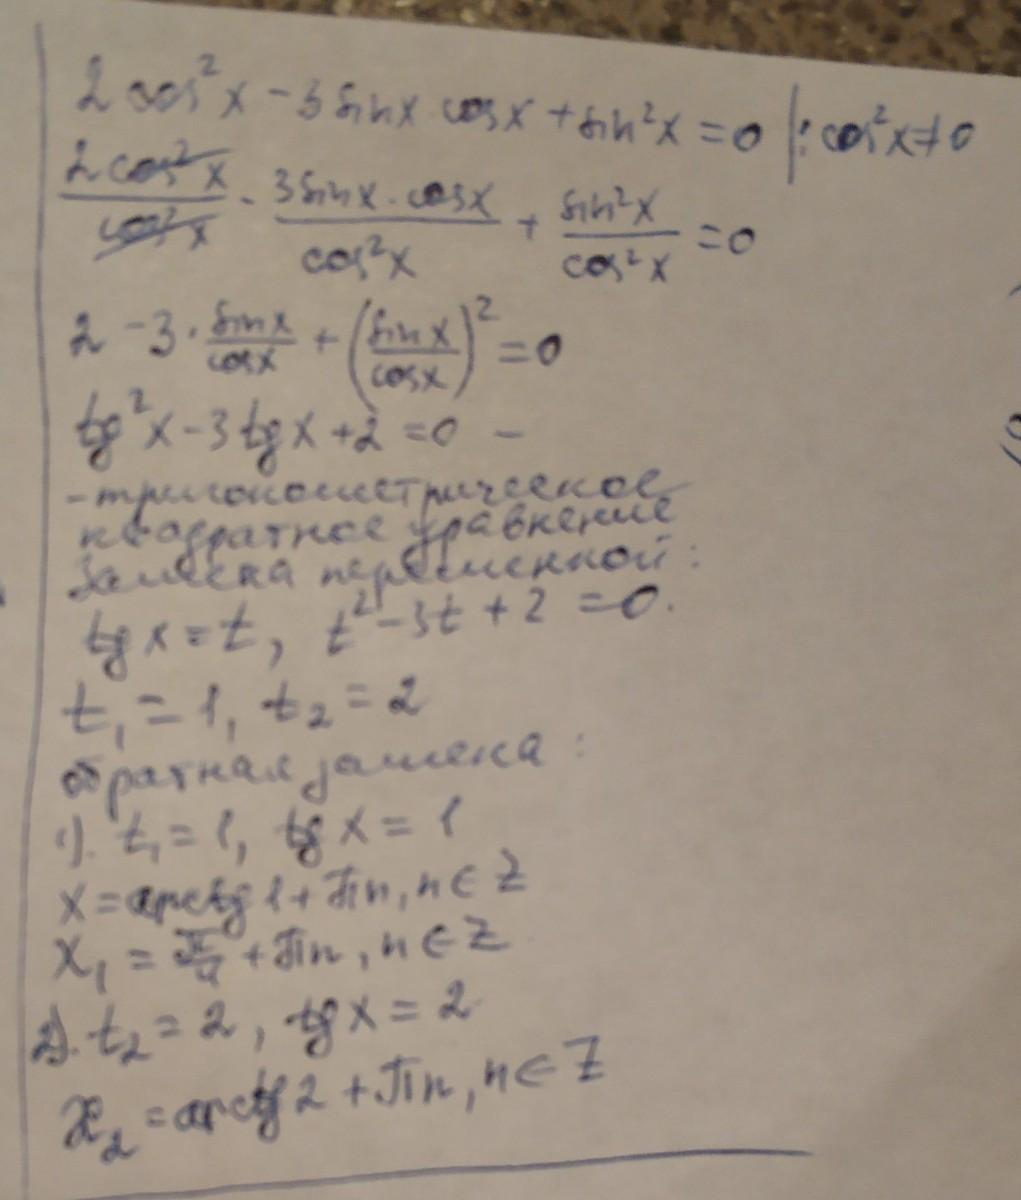 2cos²x - 3sinx·cosx + sin²x = 0 |: cos²x≠0
2cos²x/cos²x - 3sinx·cosx/cos²x + sin²x/cos²x = 0
2 - 3·sinx/cosx + (sinx/cosx)² = 0
tg²x - 3tgx + 2 = 0 -
- тригонометрическое
квадратное уравнение
Замена переменной:
tgx = t, t² - 3t + 2 = 0.
t₁ = 1, t₂ = 2
обратная замена:
1). t₁ = 1, tgx = 1
x = arctg1 + πn, n ∈ Z
x₁ = π/4 + πn, n ∈ Z
2). t₂ = 2, tgx = 2
x₂ = arctg2 + πn, n ∈ Z